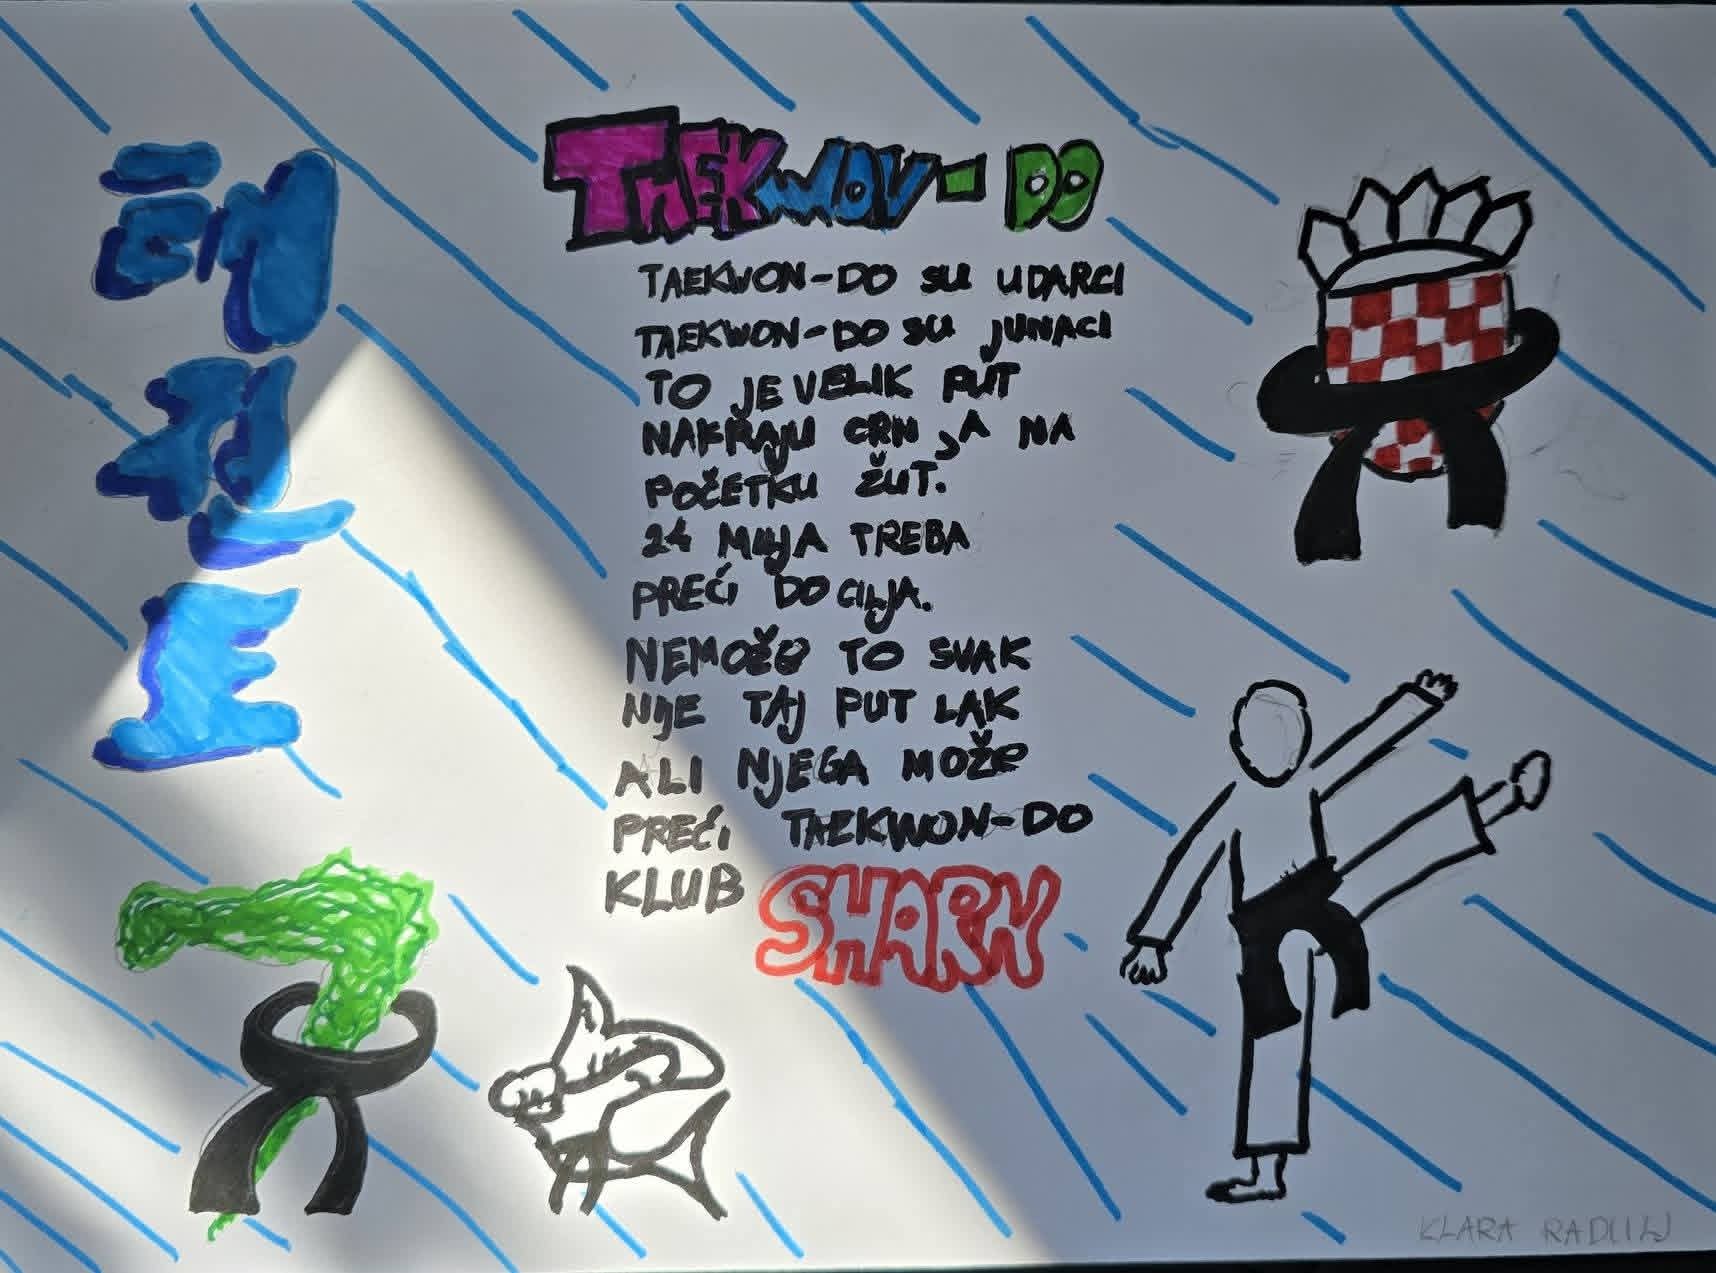 TAEKWON-DO
TAEKWON-DO SU UDARCI
TAEKWON-DO SU JUNACI
TO JE VELIK PUT
NAKRAJU CRN ,A NA
POČETKU ŽUT.
24 MILJA TREBA
PREĆI DO CILJA.
NEMOŽE TO SVAK
NIJE TAJ PUT LAK
ALI NJEGA MOŽE
PREĆI TAEKWON-DO
KLUB SHARK
KLARA